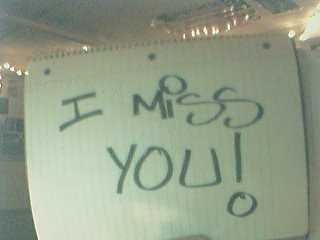 I MiSS
YOU!